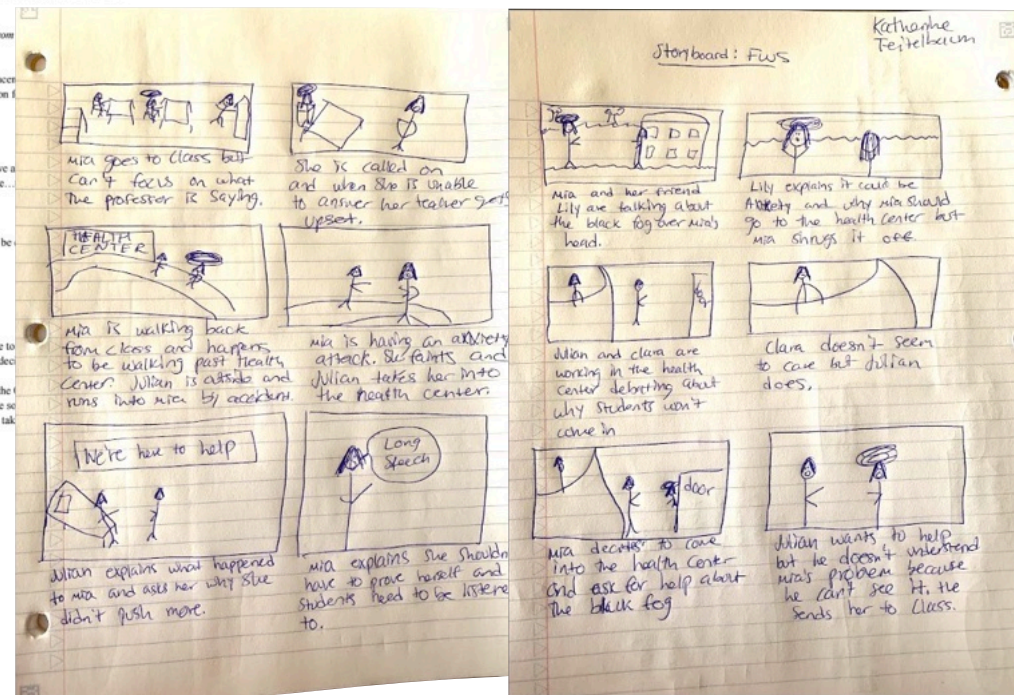 HEALTH
CENTER
We're here to help
Long
Speech
Mia goes to class but
can't focus on what
the professor is saying.
She is called on
and when she is unable
to answer her teacher gets
upset.
Mia is walking back
from class and happens
to be walking past Health
Center. Julian is outside and
runs into Mia by accident.
Mia is having an anxiety
attack. She faints and
Julian takes her into
the health center.
Julian explains what happened
to Mia and asks her why she
didn't push more.
Mia explains she shouldn
have to prove herself and
students need to be listene
to.
Katharine
Teitelbaum
Storyboard: FWS
Mia and her friend
Lily are talking about
the black fog over Mia's
head.
Lily explains it could be
Anxiety and why Mia should
go to the health center but
Mia shrugs it off.
door
Julian and Clara are
working in the health
center debating about
why students won't
come in
Clara doesn't seem
to care but Julian
does.
door
Mia decides to come
into the health center
and ask for help about
the black fog
Julian wants to help
but he doesn't understand
Mia's problem because
he can't see it. He
sends her to class.